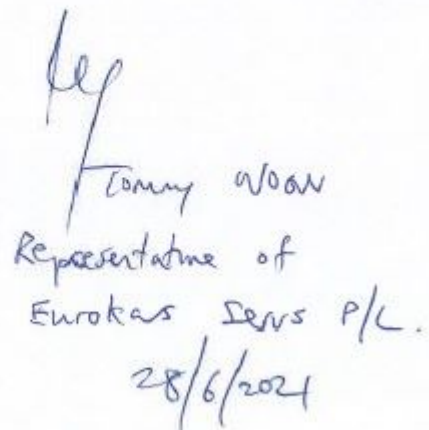 Tommy
Representative of
Eurokars Servs P/L.
28/6/2021